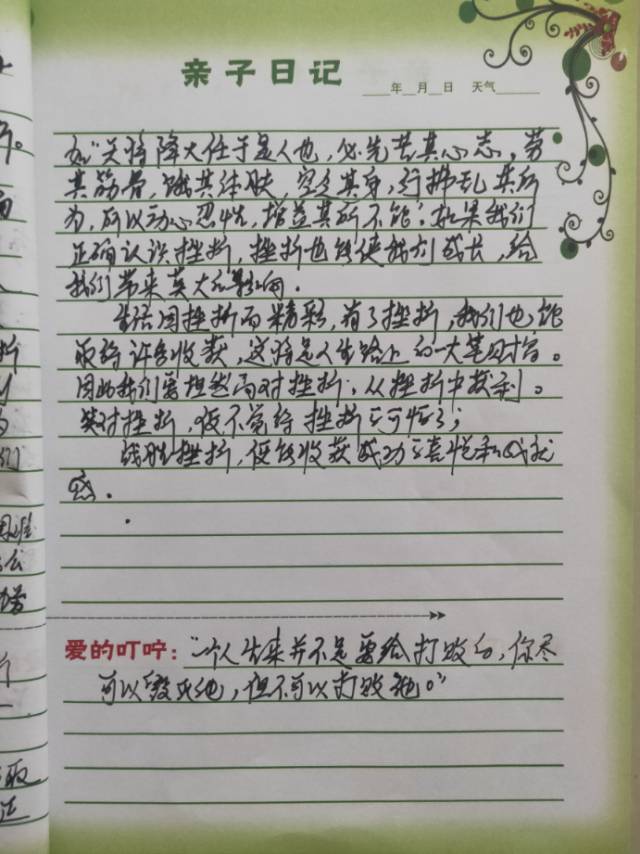 亲子日记
年 月 日 天气
如"天将降大任于是人也，必先苦其心志，劳
其筋骨，饿其体肤，空乏其身，行拂乱其所
为，所以动心忍性，增益其所不能"如果我们
正确认识挫折，挫折也能使我们成长，给
我们带来莫大的影响。
生活因挫折而精彩，有了挫折，我们也能
取得许多收获，这将是人生路上的一大笔财富。
因此我们要坦然面对挫折，从挫折中获利。
笑对挫折，便不觉得挫折的可怕了；
战胜挫折，便能收获成功的喜悦和成就
感。
爱的叮咛："一个人生来并不是要给打败的，你尽
可以毁灭他，但不可以打败他。"